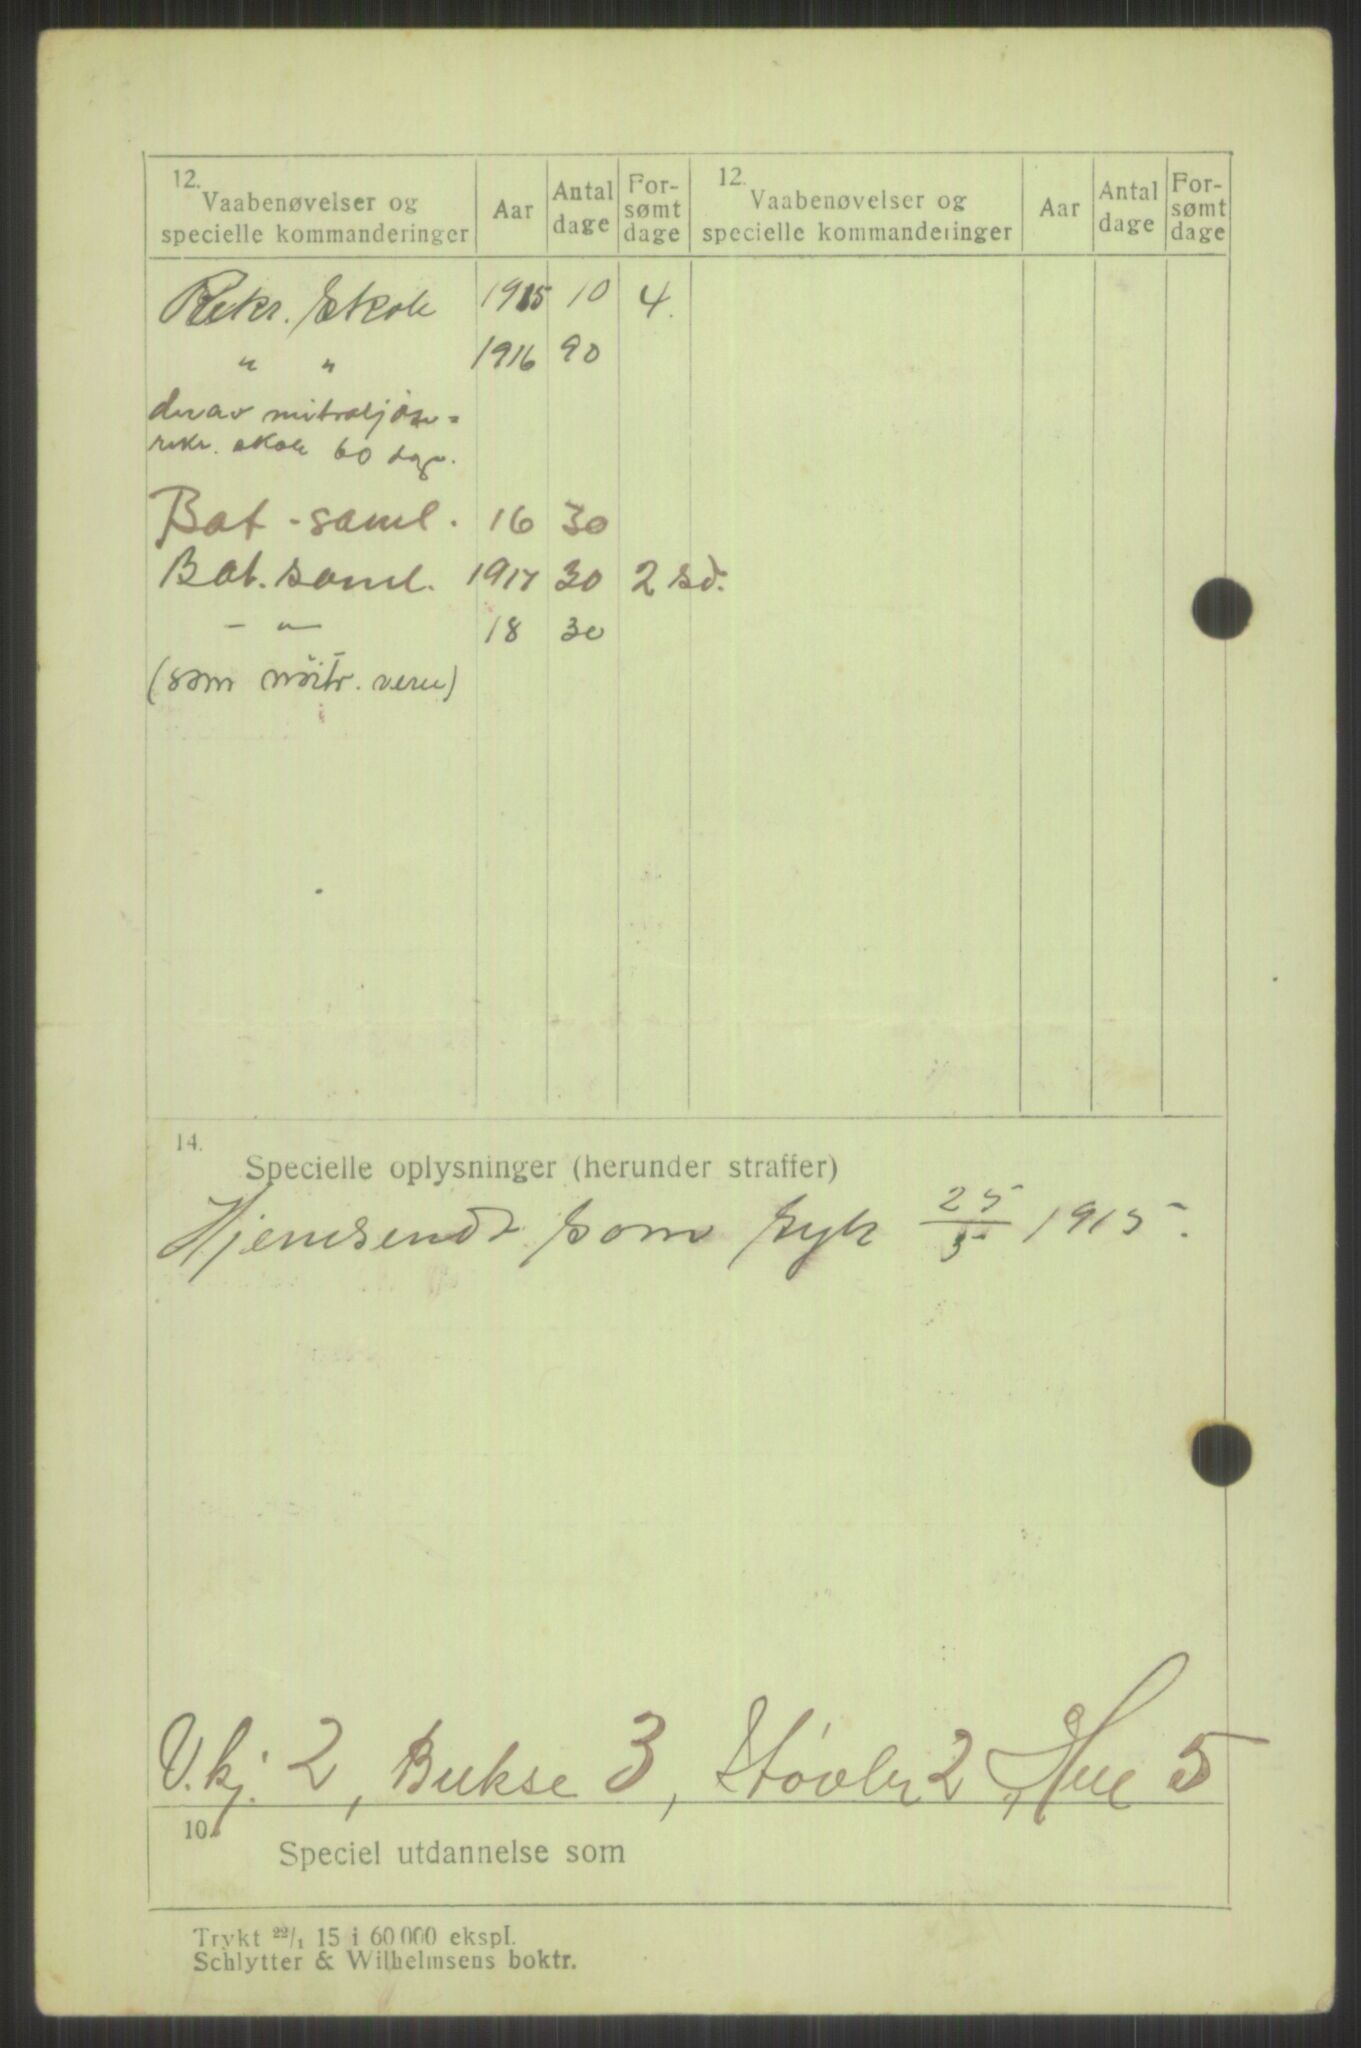 12.
Vaabenøvelser og
specielle kommanderinger
Aar
Antal
dage
For-
sømt
dage
12.
Vaabenøvelser og
specielle kommanderinger
Aar
Antal
dage
For-
sømt
dage
Rekr. Skole 1915 10 4.
" " 1916 90
derav mitraljøse-
rekr. skole 60 dage.
Bat-saml. 16 30
Bat. saml. 1917 30 2 sd.
- " - 18 30
(som mitr. verne)
14.
Specielle oplysninger (herunder straffer)
Hjemsendt som syk 25/5 1915.
V.kj. 2, Bukse 3, Støvler 2, Hue 5
10.
Speciel utdannelse som
Trykt 22/1 15 i 60 000 ekspl.
Schlytter & Wilhelmsens boktr.